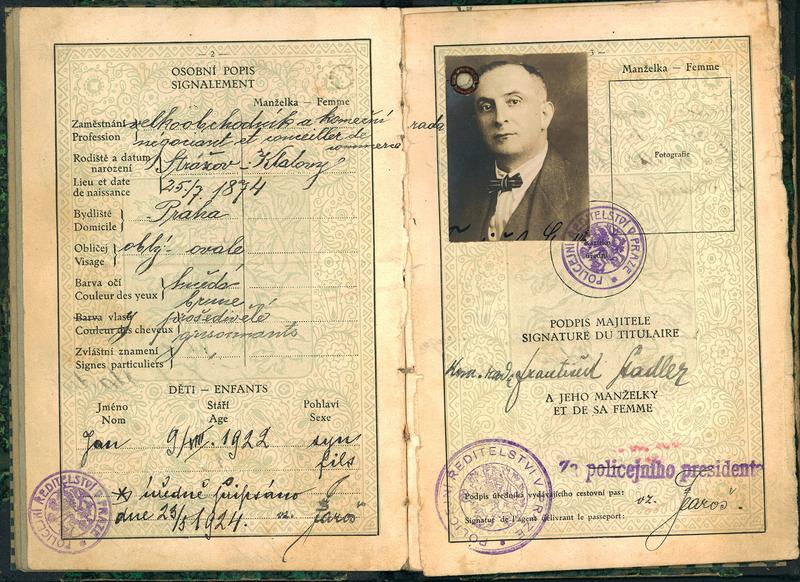 — 2 —
OSOBNÍ POPIS
SIGNALEMENT
Manželka — Femme
Zaměstnání velkoobchodník a komerční rada
Profession negociant et conseiller de commerce
Rodiště a datum narození Strážov - Klatovy
Lieu et date de naissance 25/7. 1874
Bydliště Praha
Domicile
Obličej oblý - ovale
Visage
Barva očí hnědá
Couleur des yeux brune
Barva vlasů prošedivělé
Couleur des cheveux grisonnants
Zvláštní znamení
Signes particuliers
DĚTI — ENFANTS
Jméno Stáří Pohlaví
Nom Age Sexe
Jan 9/VIII. 1922 syn
fils
úředně připsáno
dne 23/5 1924. vz. Jaroš
POLICEJNÍ ŘEDITELSTVÍ V PRAZE
3 —
Manželka — Femme
Fotografie
POLICEJNÍ ŘEDITELSTVÍ V PRAZE
PODPIS MAJITELE
SIGNATURE DU TITULAIRE
Kom. rada František Stadler
A JEHO MANŽELKY
ET DE SA FEMME
Za policejního presidenta
Podpis úředníka vydávajícího cestovní pas: vz. Jaroš
Signatur de l'agent délivrant le passeport:
POLICEJNÍ ŘEDITELSTVÍ V PRAZE